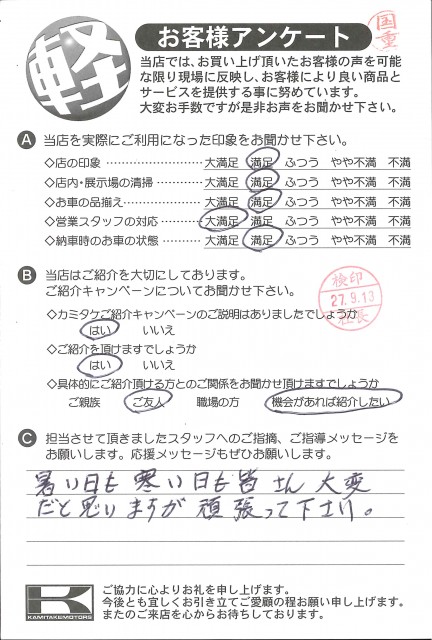 軽
お客様アンケート
国重
当店では、お買い上げ頂いたお客様の声を可能
な限り現場に反映し、お客様により良い商品と
サービスを提供する事に努めています。
大変お手数ですが是非お声をお聞かせ下さい。
A 当店を実際にご利用になった印象をお聞かせ下さい。
◇店の印象 大満足 満足 ふつう やや不満 不満
◇店内・展示場の清掃 大満足 満足 ふつう やや不満 不満
◇お車の品揃え 大満足 満足 ふつう やや不満 不満
◇営業スタッフの対応 大満足 満足 ふつう やや不満 不満
◇納車時のお車の状態 大満足 満足 ふつう やや不満 不満
B 当店はご紹介を大切にしてあります。
ご紹介キャンペーンについてお聞かせ下さい。
検印
27.9.13
社長
◇カミタケご紹介キャンペーンのご説明はありましたでしょうか
はい いいえ
◇ご紹介を頂けますでしょうか
はい いいえ
◇具体的にご紹介頂ける方とのご関係をお聞かせ頂けますでしょうか
ご親族 ご友人 職場の方 機会があれば紹介したい
C 担当させて頂きましたスタッフへのご指摘、ご指導メッセージを
お願いします。応援メッセージもぜひお願いします。
暑い日も寒い日も皆さん大変
だと思いますが頑張って下さい。
K
KAMITAKEMOTORS
ご協力に心よりお礼を申し上げます。
今後とも宜しくお引き立てご愛顧の程お願い申し上げます。
またのご来店を心からお待ちしております。